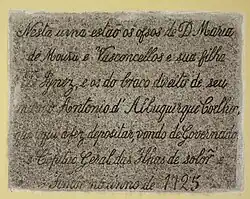 Nesta urna estaõ os oſsos de D. Maria
de Moura e Vasconcellos e sua filha
D. Ignez, e os do braço direito de seu
Antonio d'Albuquerque Coelho,
que aqui a fez depositar vondo de Governador
e Capitao Geral das Ilhas de Solor e
Timor no anno de 1725